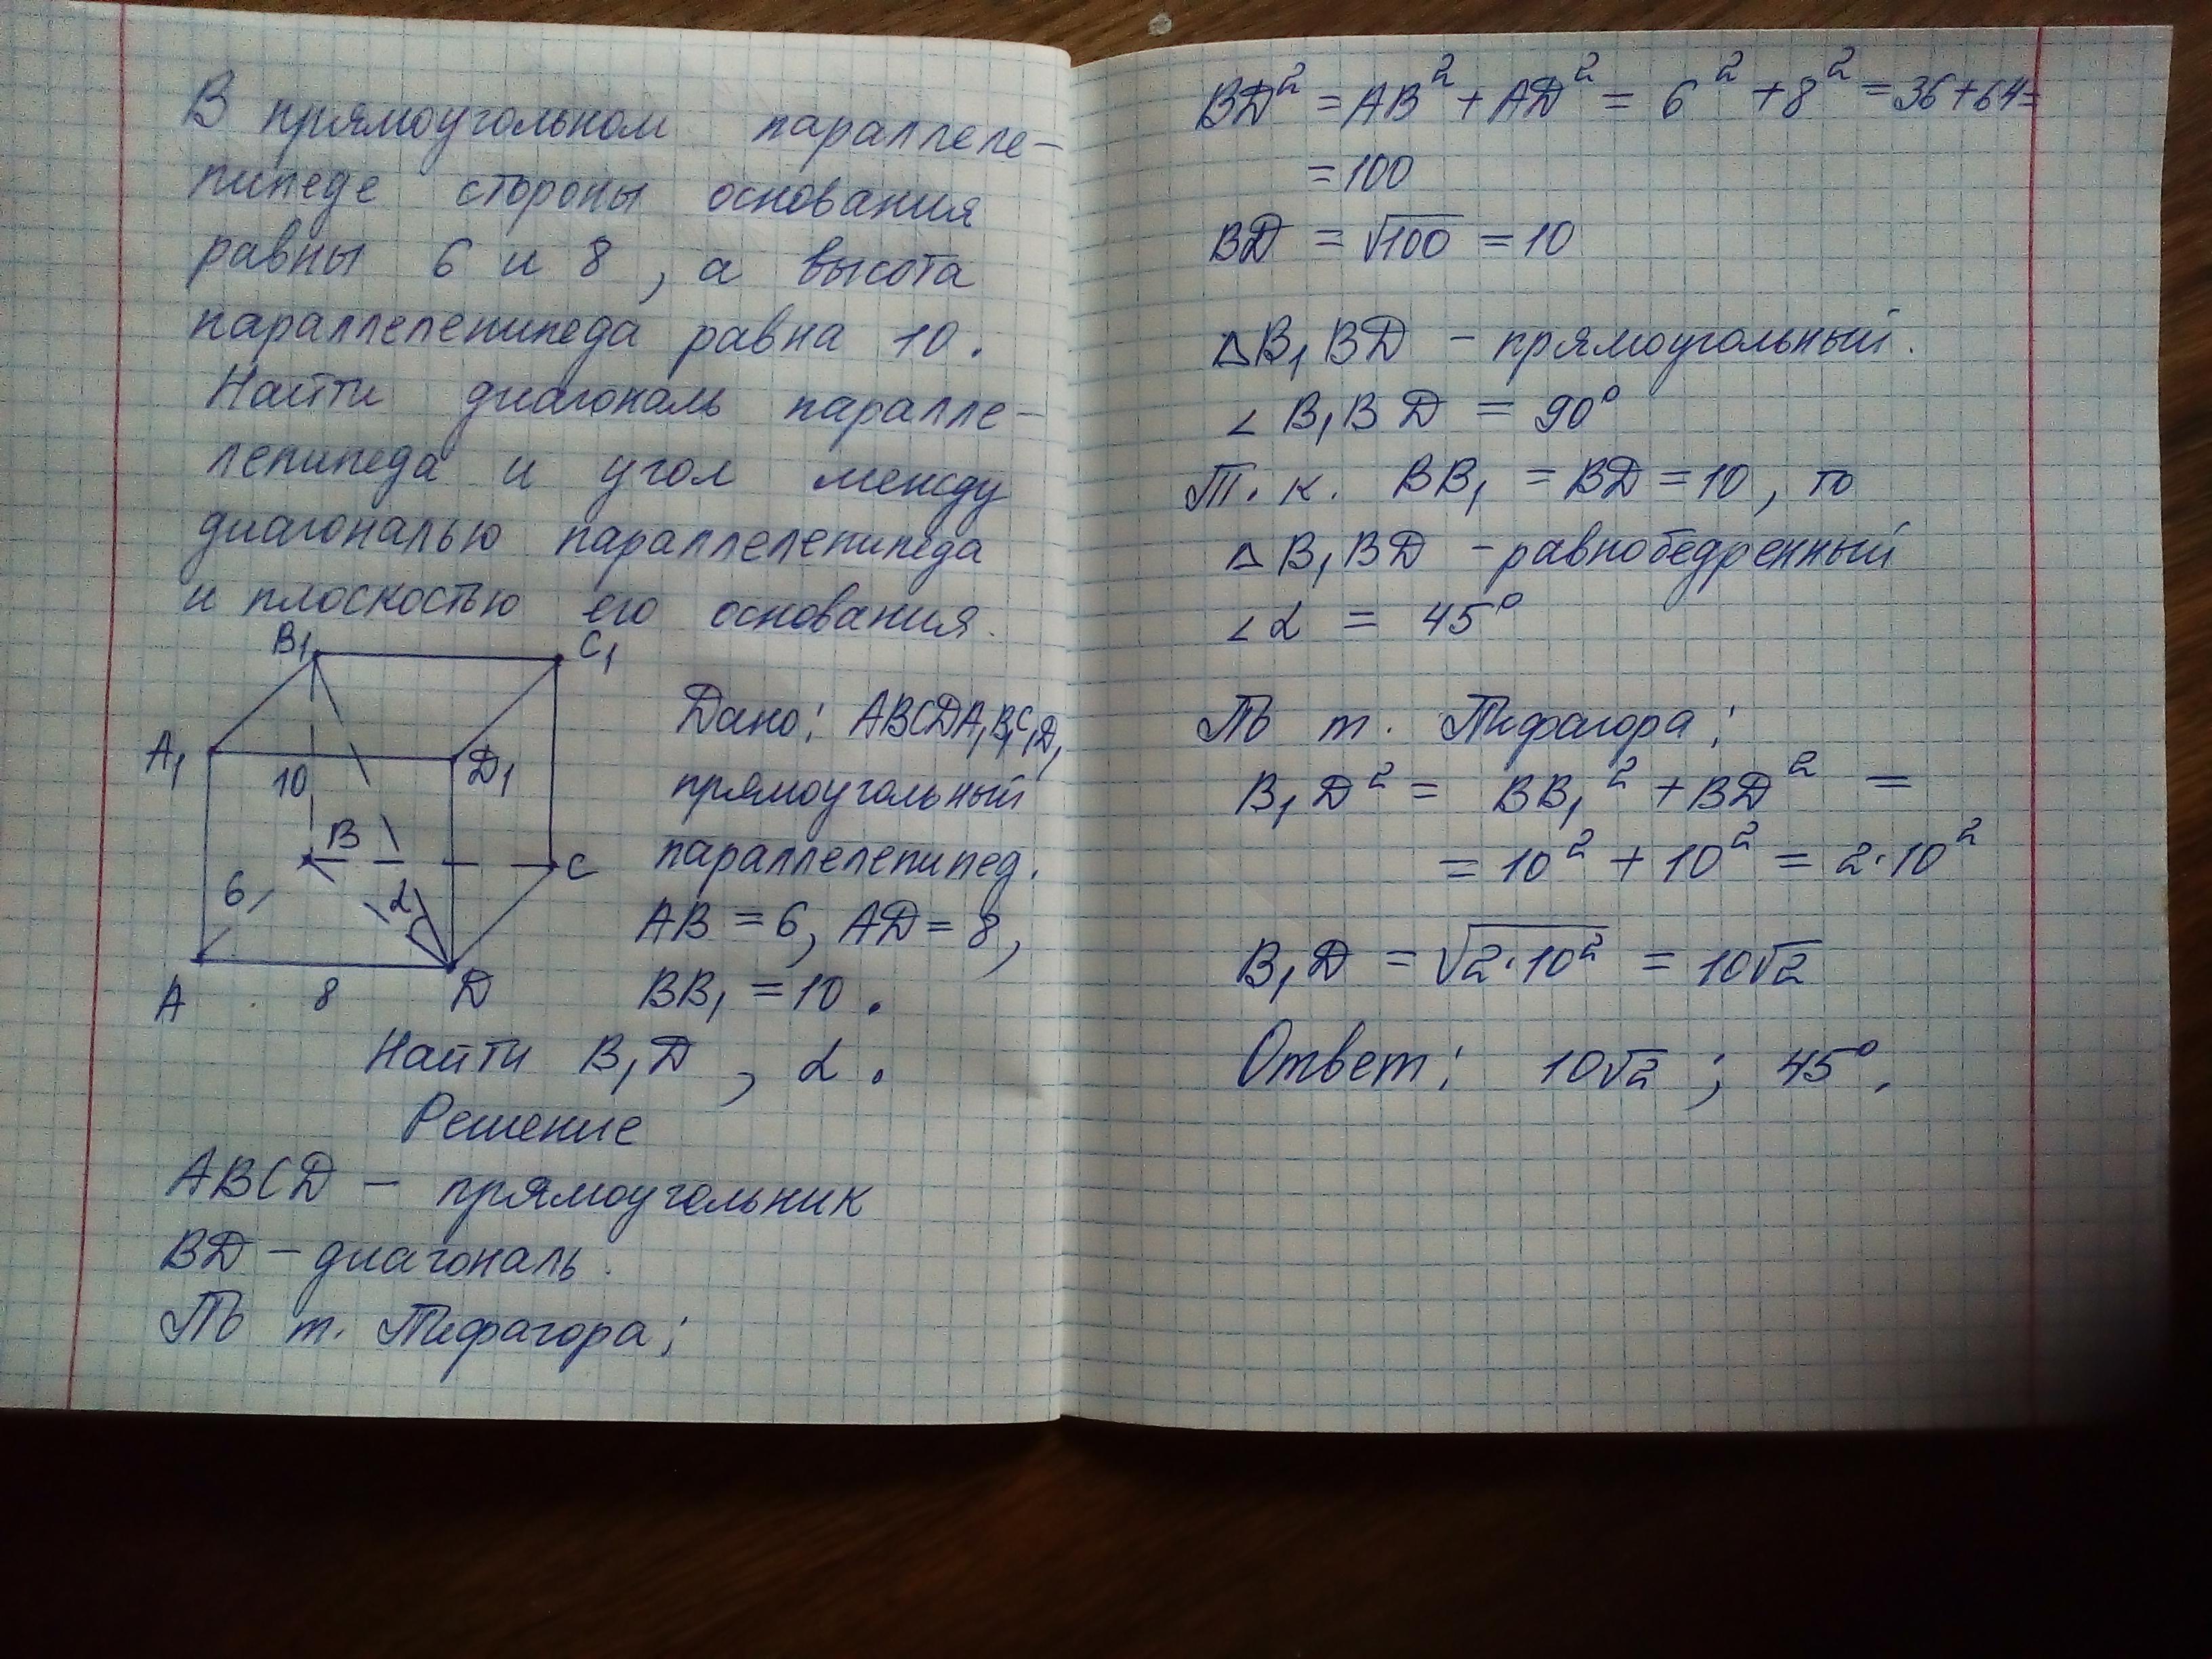 В прямоугольном параллеле-
пипеде стороны основания
равны 6 и 8, а высота
параллелепипеда равна 10.
Найти диагональ паралле-
лепипеда и угол между
диагональю параллелепипеда
и плоскостью его основания.
B₁ C₁
A₁ D₁
10
B
C
6
α
A 8 D
Дано: ABCDA₁B₁C₁D₁
прямоугольный
параллелепипед.
AB = 6, AD = 8,
BB₁ = 10.
Найти B₁D, α.
Решение
ABCD – прямоугольник
BD – диагональ.
По т. Пифагора:
BD² = AB² + AD² = 6² + 8² = 36 + 64 =
= 100
BD = √100 = 10
△B₁BD – прямоугольный.
∠B₁BD = 90°
Т. к. BB₁ = BD = 10, то
△B₁BD – равнобедренный
∠α = 45°
По т. Пифагора:
B₁D² = BB₁² + BD² =
= 10² + 10² = 2·10²
B₁D = √2·10² = 10√2
Ответ: 10√2; 45°.